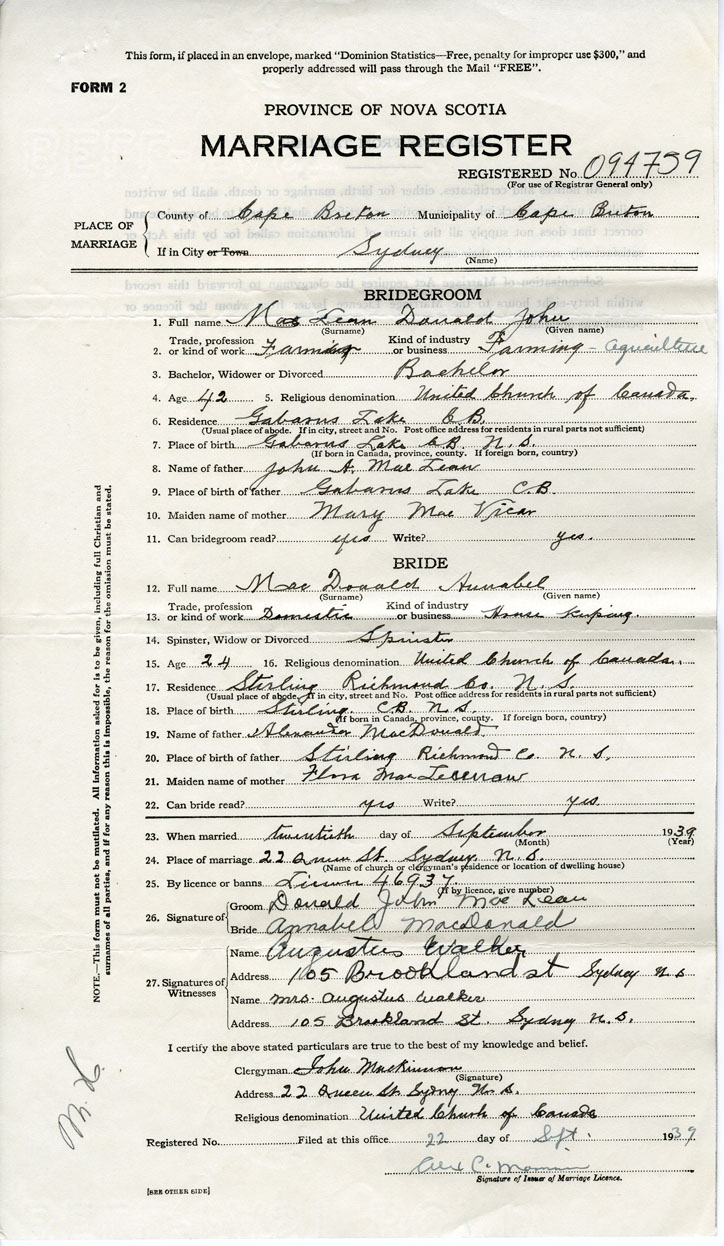 This form, if placed in an envelope, marked "Dominion Statistics—Free, penalty for improper use $300," and
properly addressed will pass through the Mail "FREE".
FORM 2
PROVINCE OF NOVA SCOTIA
MARRIAGE REGISTER
REGISTERED No. 094759
(For use of Registrar General only)
PLACE OF MARRIAGE
County of Cape Breton Municipality of Cape Breton
If in City or Town Sydney
(Name)
BRIDEGROOM
1. Full name MacLean Donald John
(Surname) (Given name)
Trade, profession Kind of industry
2. or kind of work Farming or business Farming - agriculture
3. Bachelor, Widower or Divorced Bachelor
4. Age 42 5. Religious denomination United Church of Canada.
6. Residence Gabarus Lake C.B.
(Usual place of abode. If in city, street and No. Post office address for residents in rural parts not sufficient)
7. Place of birth Gabarus Lake C.B. N.S.
(If born in Canada, province, county. If foreign born, country)
8. Name of father John A. MacLean
9. Place of birth of father Gabarus Lake C.B.
10. Maiden name of mother Mary MacVicar
11. Can bridegroom read? yes Write? yes.
BRIDE
12. Full name MacDonald Annabel
(Surname) (Given name)
Trade, profession Kind of industry
13. or kind of work Domestic or business House keeping.
14. Spinster, Widow or Divorced Spinster
15. Age 24 16. Religious denomination United Church of Canada.
17. Residence Stirling Richmond Co. N.S.
(Usual place of abode. If in city, street and No. Post office address for residents in rural parts not sufficient)
18. Place of birth Stirling. C.B. N.S.
(If born in Canada, province, county. If foreign born, country)
19. Name of father Alexander MacDonald
20. Place of birth of father Stirling Richmond Co. N.S.
21. Maiden name of mother Flora
22. Can bride read? yes Write? yes
23. When married twentieth day of September 1939
(Month) (Year)
24. Place of marriage 22 Queen St. Sydney. N.S.
(Name of church or clergyman's residence or location of dwelling house)
25. By licence or banns License 46937.
(If by licence, give number)
26. Signature of
Groom Donald John MacLean
Bride Annabel MacDonald
27. Signatures of Witnesses
Name Augustus Walker
Address 105 Brookland st Sydney N S
Name Mrs. Augustus Walker
Address 105 Brookland St. Sydney N.S.
I certify the above stated particulars are true to the best of my knowledge and belief.
Clergyman John Mackinnon
(Signature)
Address 22 Queen St. Sydney N.S.
Religious denomination United Church of Canada
Registered No. Filed at this office 22 day of Sept. 1939
Signature of Issuer of Marriage Licence.
[SEE OTHER SIDE]
NOTE.—This form must not be mutilated. All information asked for is to be given, including full Christian and
surnames of all parties, and if for any reason this is impossible, the reason for the omission must be stated.
M. H.